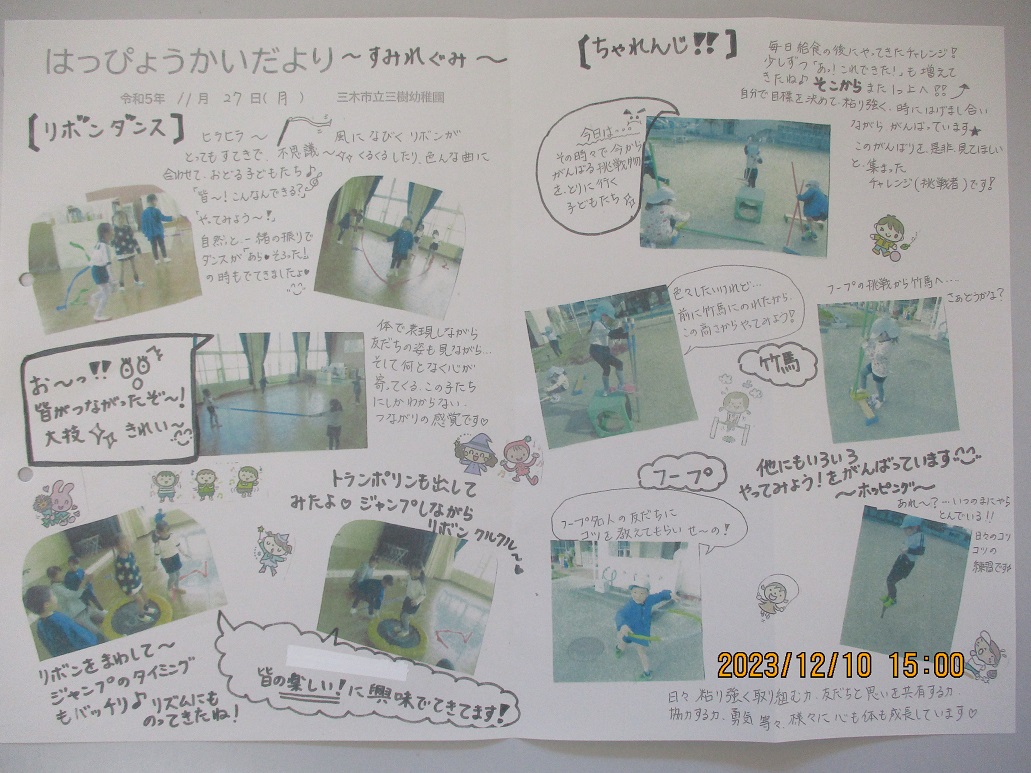 はっぴょうかいだより～すみれぐみ～
令和5年 11月 27日(月) 三木市立三樹幼稚園
[リボンダンス]
ヒラヒラ～ 風になびくリボンが
とってもすてきで、不思議～ くるくるしたり、色んな曲に
合わせて、おどる子どもたち♪
「皆～!こんなんできる?」
「やってみよう～!」
自然と、一緒の振りで
ダンスが「あら♥そろった!」
の時もでてきましたよ♥
体で表現しながら
友だちの姿も見ながら…
そして何となく心が
寄ってくる、この子たち
にしかわからない、
つながりの感覚です♡
お～っ!!
皆がつながったぞ～!
大技 きれい～
トランポリンも出して
みたよ♡ジャンプしながら
リボンクルクル～
リボンをまわして～
ジャンプのタイミング
もバッチリ♪リズムにも
のってきたね!
皆の楽しい!に興味でてきてます!
[ちゃれんじ!!]
毎日給食の後にやってきたチャレンジ!
少しずつ「あっ!これできた!」も増えて
きたね♪そこからまた1つ上へ!!
自分で目標を決めて、粘り強く、時にはげまし合い
ながら がんばっています★
このがんばりを、是非、見てほしい
と、集まった
チャレンジ(挑戦者)です!
今日は…
その時々で今から
がんばる挑戦物
を、とりに行く
子どもたち
色々したいけれど…
前に竹馬にのれたから、
この高さからやってみよう!
竹馬
フープの挑戦から竹馬へ…
さぁどうかな?
フープ
他にもいろいろ
やってみよう!をがんばっています
～ホッピング～
フープ名人の友だちに
コツを教えてもらい せ～の!
あれ～?…いつのまにやら
とんでいる!!
日々のコツ
コツの
練習です
2023/12/10 15:00
日々、粘り強く取り組む力、友だちと思いを共有する力、
協力する力、勇気 等々、様々に心も体も成長しています♡